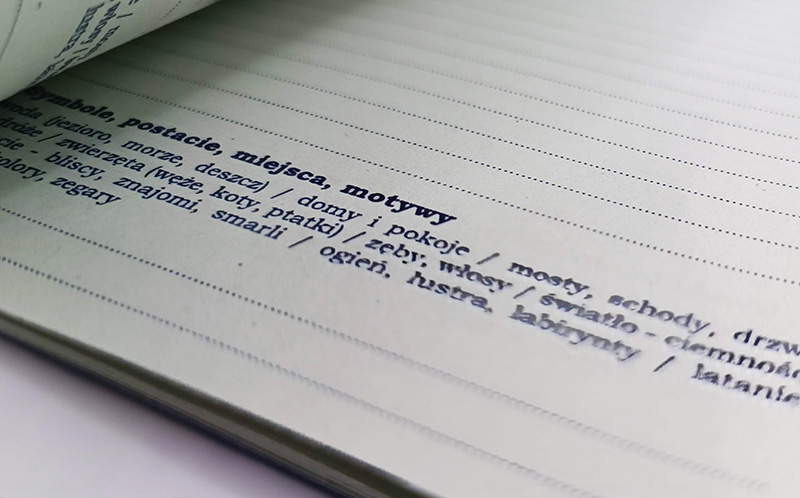 Symbole, postacie, miejsca, motywy
woda (jezioro, morze, deszcz) / domy i pokoje / mosty, schody, drzw
dróże / zwierzęta (węże, koty, ptatki) / zęby, włosy / światło - ciemność
cie - bliscy, znajomi, smarli / ogień, lustra, labirynty / latanie
olory, zegary